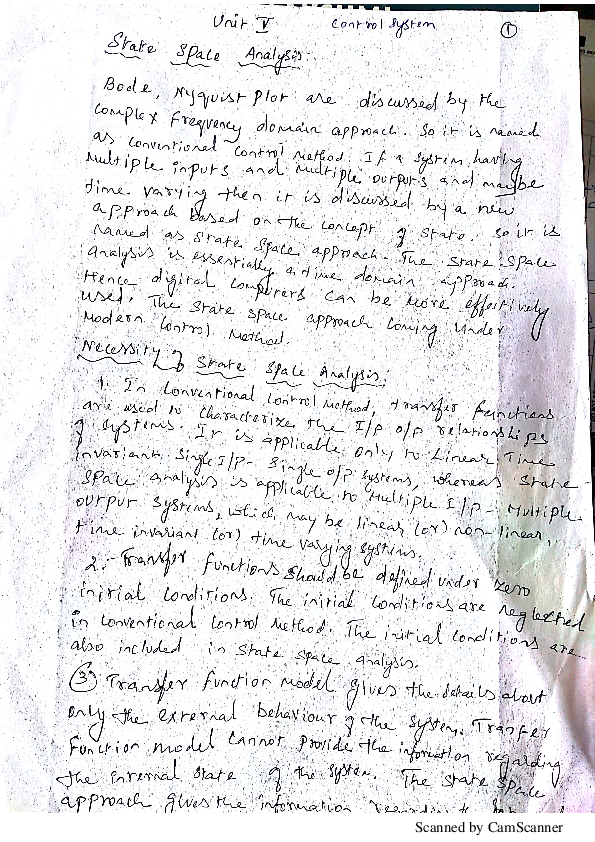 Unit V Control System 1
State Space Analysis:
Bode, Nyquist Plot are discussed by the
complex frequency domain approach. So it is named
as conventional control method. If a system having
Multiple inputs and Multiple outputs and maybe
time varying then it is discussed by a new
approach based on the concept of state. So it is
named as State Space approach. The State Space
analysis is essentially a time domain approach.
Hence digital computers can be more effectively
used. The State space approach coming under
Modern Control Method.
Necessity of State Space Analysis:
1. In Conventional Control Method, transfer functions
are used to characterize the I/p o/p relationships
of systems. It is applicable only to Linear Time
invariant Single I/P - Single o/p systems, whereas State
Space analysis is applicable to Multiple I/P - Multiple
output Systems, which may be linear (or) non-linear,
time invariant (or) time varying systems.
2. Transfer functions should be defined under zero
initial conditions. The initial conditions are neglected
in Conventional Control Method. The initial conditions are
also included in State space analysis.
3 Transfer function model gives the details about
only the external behaviour of the system. Transfer
function model cannot provide the information regarding
the internal state of the system. The state space
approach gives the information regarding the
Scanned by CamScanner